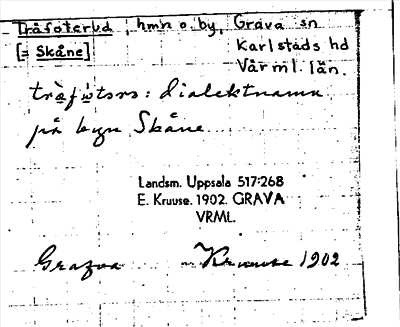 Träfoterud, hmn o. by, Grava sn
[= Skåne] Karlstads hd
Värml. län.
träfotsrs: dialektnamn
på byn Skåne
Landsm. Uppsala 517:268
E. Kruuse. 1902. GRAVA
VRML.
Grafva Kruuse 1902